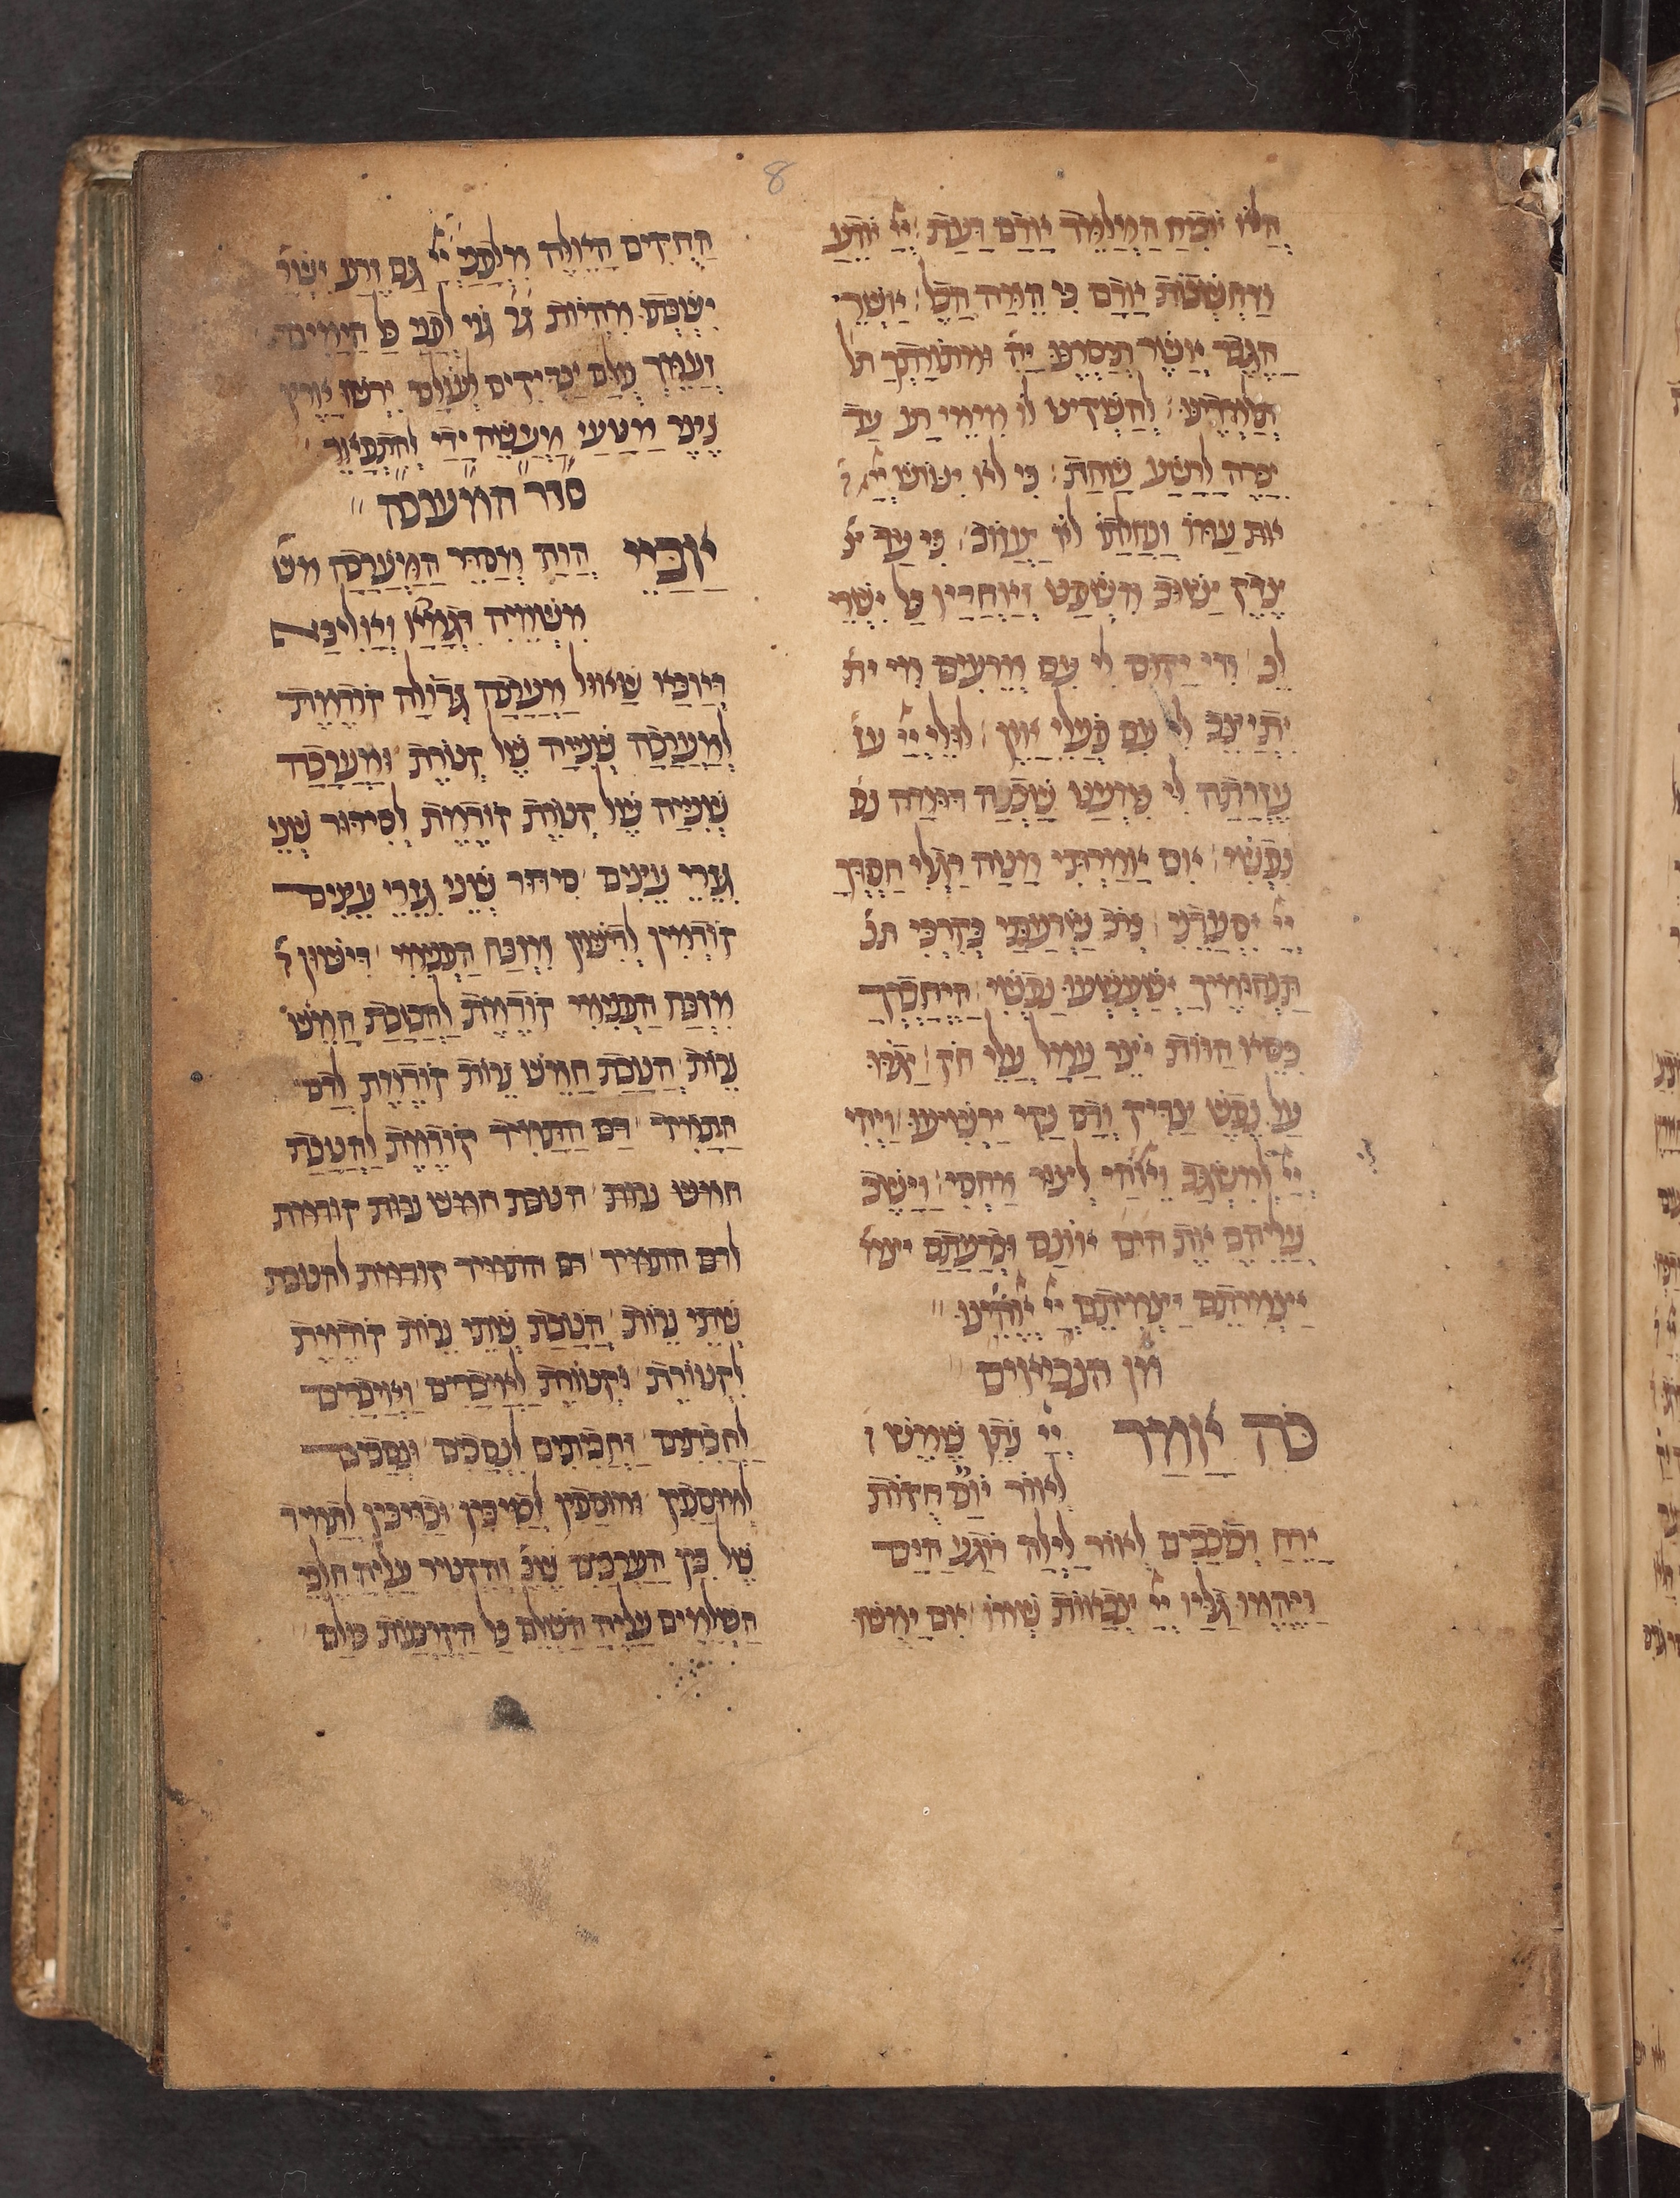 8
הלא יוכיח המלמד אדם דעת יי יודע
מחשבות אדם כי המה הבל אשרי
הגבר אשר תיסרנו יה ומתורתך תל
תלמדנו להשקיט לו מימי רע עד
יכרה לרשע שחת כי לא יטוש יי
את עמו ונחלתו לא יעזוב כי עד צ
צדק ישוב משפט ואחריו כל ישרי
לב מי יקום לי עם מרעים מי ית
יתייצב לי עם פועלי און לולי יי עז
עזרתה לי כמעט שכנה דומה נפ
נפשי אם אמרתי מטה רגלי חסדך
יי יסעדני ברב שרעפיי בקרבי תנ
תנחומיך ישעשעו נפשי היחברך
כסא הוות יוצר עמל עלי חק יגודו
על נפש צדיק ודם נקי ירשיעו ויהי
יי לי למשגב ואלהי לצור מחסי וישב
עליהם את אונם וברעתם יצמ
יצמיתם יצמיתם יי אלהינו
מן הנביאים
כה אמר יי נתן שמש
לאור יומם חוקות
ירח וכוכבים לאור לילה רוגע הים
ויהמו גליו יי צבאות שמו אם ימשו
החקים האלה מלפני יי גם זרע ישר
ישבתו מהיות גוי לפני כל הימים
ועמך כלם צדיקים לעולם ירשו ארץ
נצר מטעי מעשה ידי להתפאר
סדר המערכה
אביי הוה מסדר המערכה מש
משמיה דגמרא ואליבא
דאבא שאול מערכה גדולה קודמת
למערכה שנייה של קטורת ומערכה
שנייה של קטורת קודמת לסידור שני
גזרי עצים סידור שני גזרי עצים
קודמין לדישון מזבח הפנימי דישון
מזבח הפנימי קודמת להטבת חמש
נרות הטבת חמש נרות קודמת לדם
התמיד דם התמיד קודמת להטבת
חמש נרות הטבת חמש נרות קודמת
לדם התמיד דם התמיד קודמת להטבת
שתי נרות הטבת שתי נרות קודמת
לקטורת וקטורת לאיברים ואיברים
לחביתים וחביתים לנסכים ונסכים
למוספין ומוספין לבזיכין ובזיכין לתמיד
של בין הערבים שנ והקטיר עליה חלבי
השלמים עליה השלם כל הקרבנות כולם